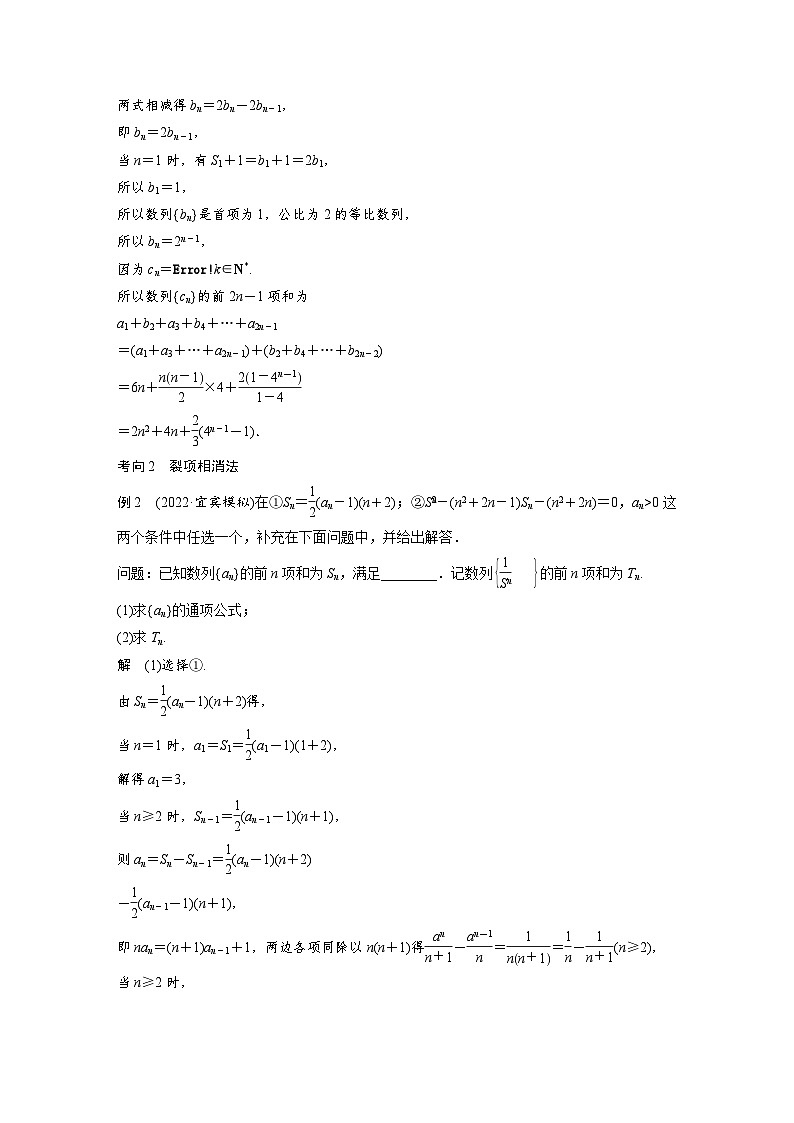 两式相减得 bₙ=2bₙ-2bₙ₋₁,
即 bₙ=2bₙ₋₁,
当 n=1 时,有 S₁+1=b₁+1=2b₁,
所以 b₁=1,
所以数列{bₙ}是首项为 1,公比为 2 的等比数列,
所以 bₙ=2ⁿ⁻¹,
因为 cₙ=Error!k∈N*.
所以数列{cₙ}的前 2n-1 项和为
a₁+b₂+a₃+b₄+…+a₂ₙ₋₁
=(a₁+a₃+…+a₂ₙ₋₁)+(b₂+b₄+…+b₂ₙ₋₂)
=6n+\frac{n(n-1)}{2}×4+\frac{2(1-4ⁿ⁻¹)}{1-4}
=2n²+4n+\frac{2}{3}(4ⁿ⁻¹-1).
考向 2 裂项相消法
例 2 (2022·宜宾模拟)在①Sₙ=\frac{1}{2}(aₙ-1)(n+2);②S-(n²+2n-1)Sₙ-(n²+2n)=0,aₙ>0 这
两个条件中任选一个,补充在下面问题中,并给出解答.
问题:已知数列{aₙ}的前 n 项和为 Sₙ,满足________.记数列{\frac{1}{Sⁿ}}的前 n 项和为 Tₙ.
(1)求{aₙ}的通项公式;
(2)求 Tₙ.
解 (1)选择①.
由 Sₙ=\frac{1}{2}(aₙ-1)(n+2)得,
当 n=1 时,a₁=S₁=\frac{1}{2}(a₁-1)(1+2),
解得 a₁=3,
当 n≥2 时,Sₙ₋₁=\frac{1}{2}(aₙ₋₁-1)(n+1),
则 aₙ=Sₙ-Sₙ₋₁=\frac{1}{2}(aₙ-1)(n+2)
-\frac{1}{2}(aₙ₋₁-1)(n+1),
即 naₙ=(n+1)aₙ₋₁+1,两边各项同除以 n(n+1)得\frac{aⁿ}{n+1}-\frac{aⁿ⁻¹}{n}=\frac{1}{n(n+1)}=\frac{1}{n}-\frac{1}{n+1}(n≥2),
当 n≥2 时,